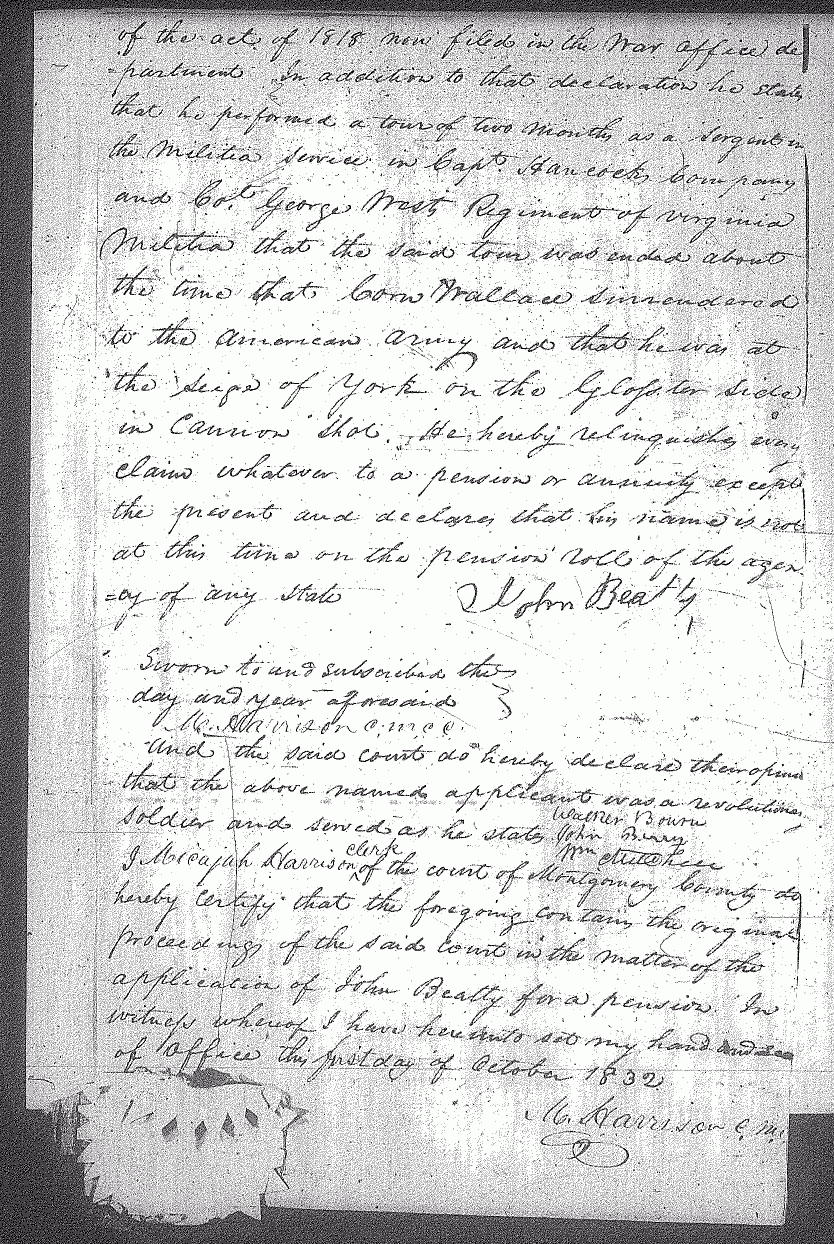 of the act of 1818 now filed in the War office de
=partment In addition to that declaration he states
that he performed a tour of two months as a Sergent in
the Militia Service in Capt. Hancocks Company
and Col. George West Regiment of virginia
Militia that the said tour was ended about
the time that Corn Wallace surrendered
to the American army and that he was at
the seige of York on the Gloster side
in Cannon shot. He hereby relinquishes every
claim whatever to a pension or annuity except
the present and declares that his name is not
at this time on the pension roll of the agen
=cy of any state
John Beatty
Sworn to and subscribed the
day and year aforesaid
M. Harrison c.m c c.
And the said court do hereby declare their opinion
that the above named applicant was a revolutionary
soldier and served as he states
Walker Bourn
John Berry
Wm
I Micajah Harrison clerk of the court of Montgomery County do
hereby certify that the foregoing contains the original
proceedings of the said court in the matter of the
application of John Beatty for a pension. In
witness whereof I have hereunto set my hand and
of Office this first day of October 1832
M. Harrison c. m.